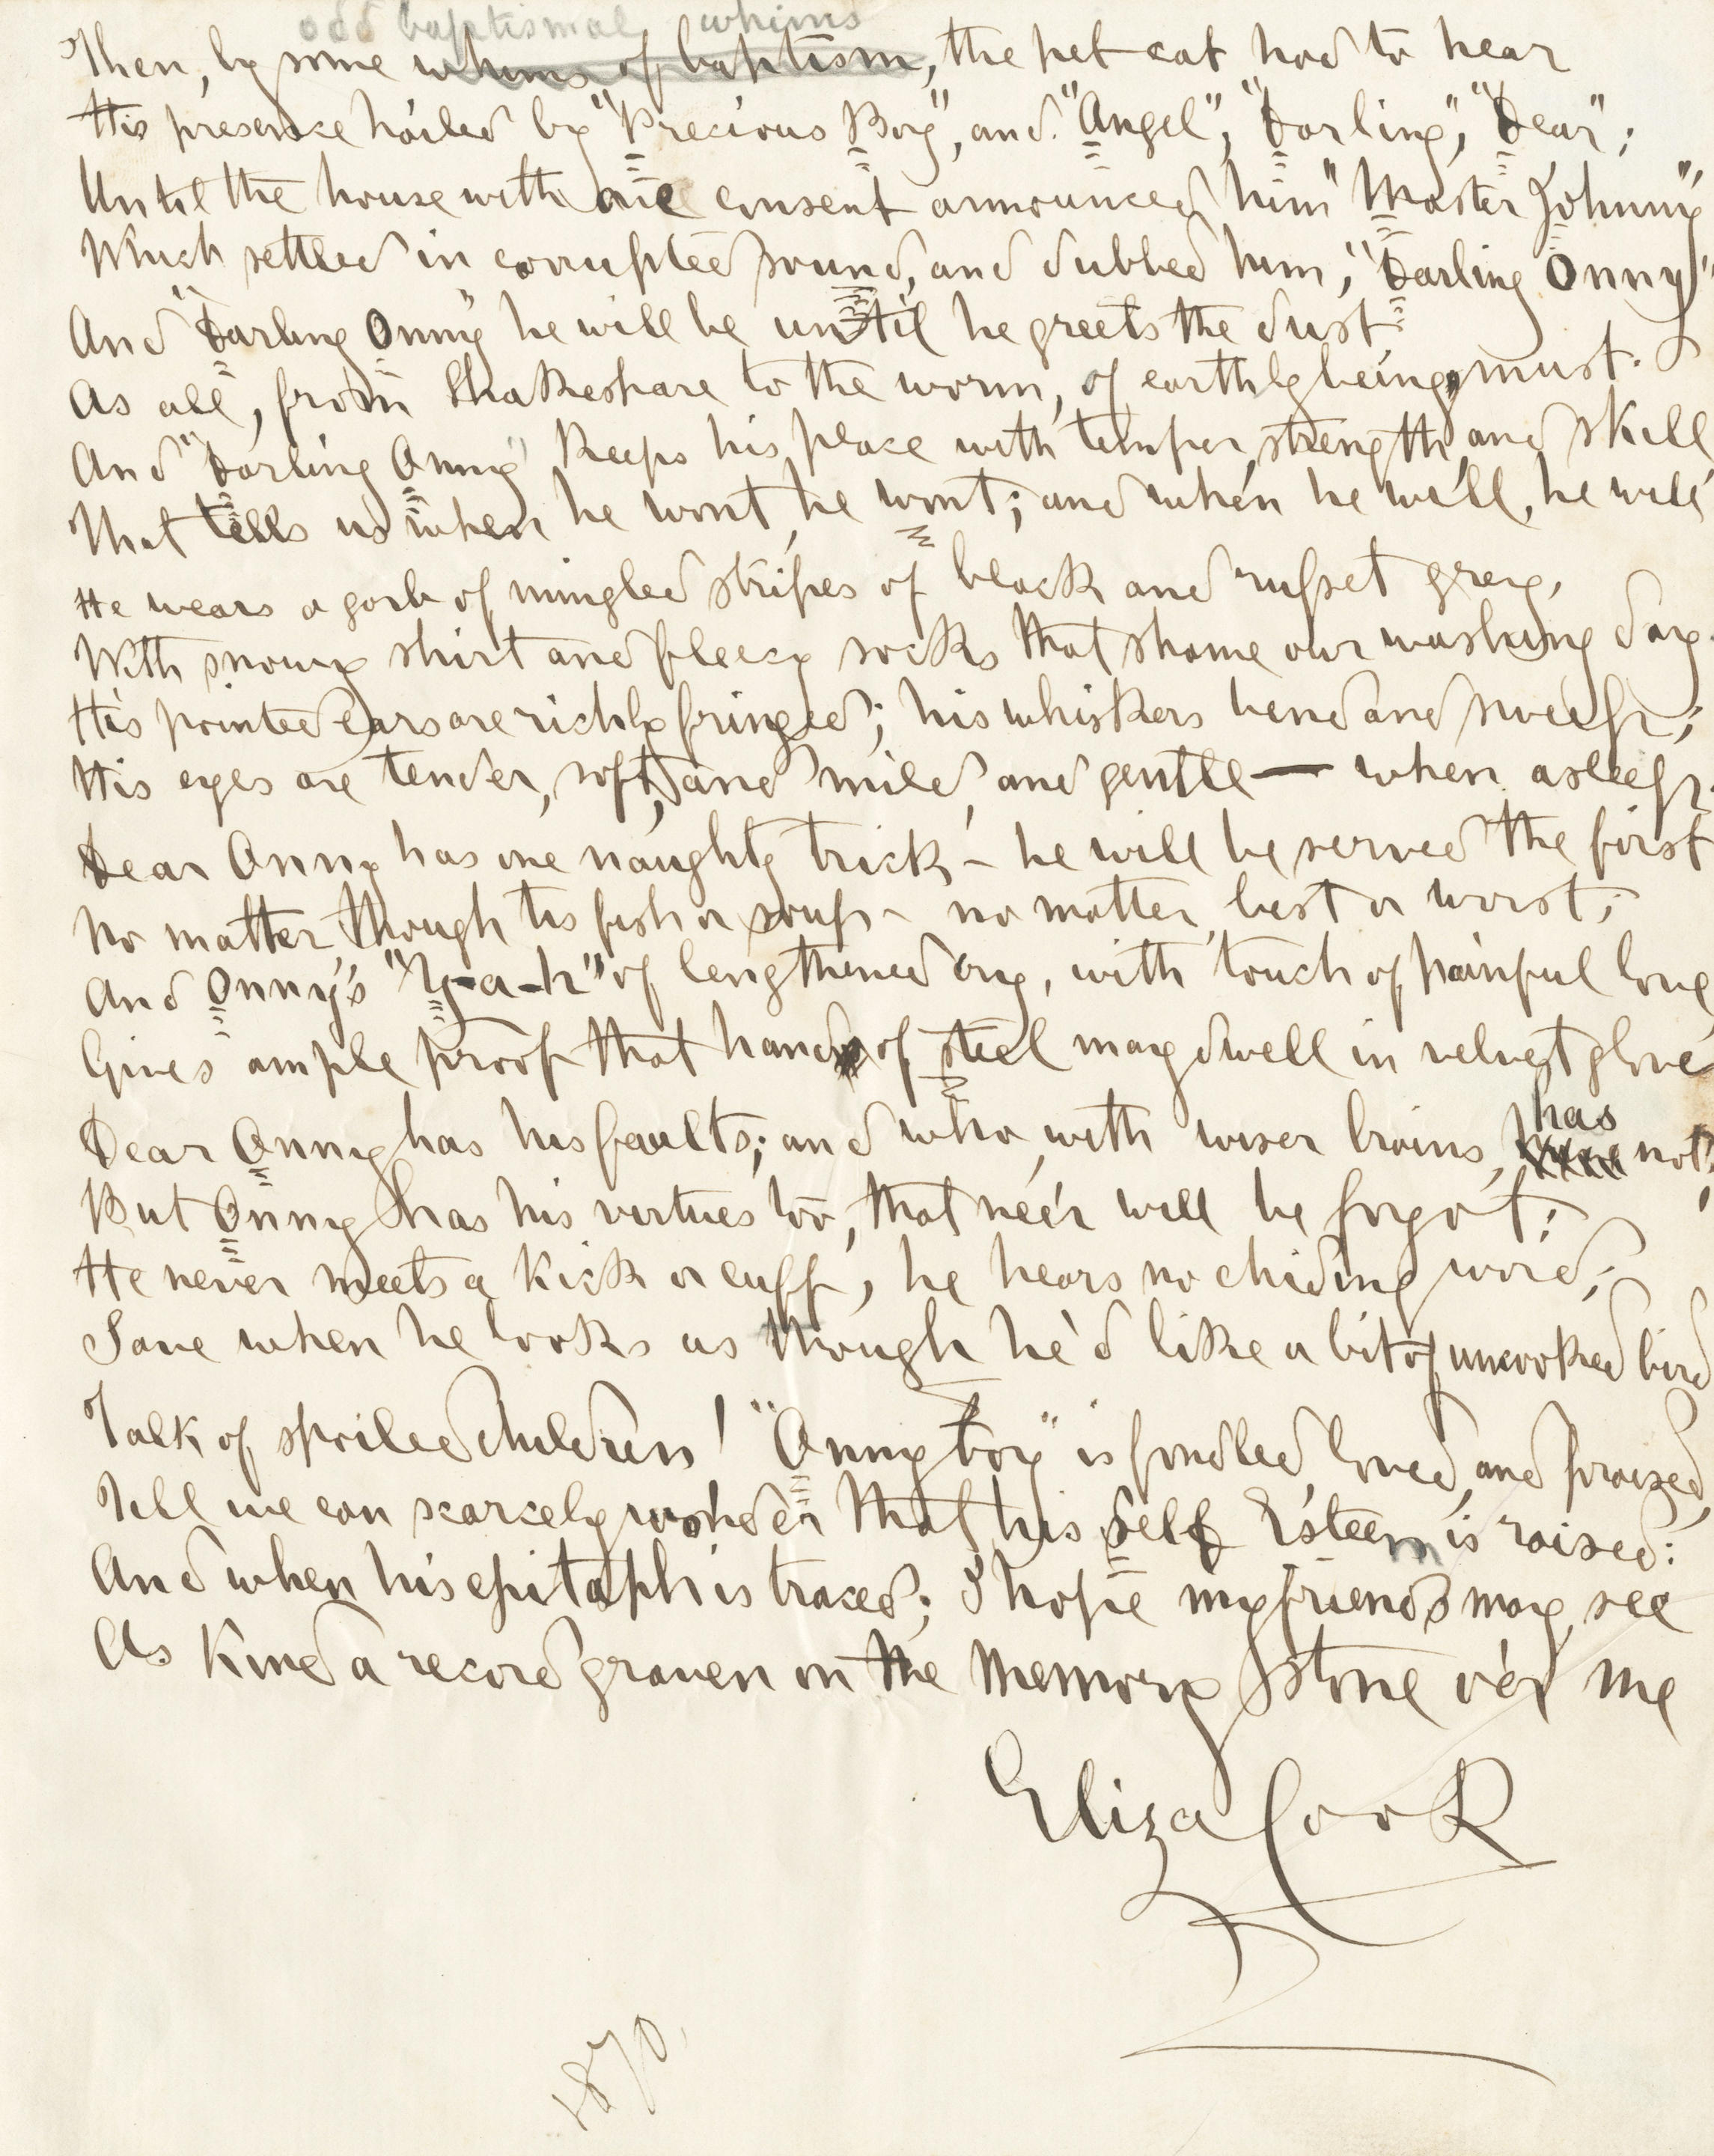 odd baptismal whims
Then, by some whims of baptism, the pet cat had to hear
His presence hailed by "Precious Boy", and "Angel", "Darling", "Dear";
Until the house with one consent announced him "Master Johnny",
Which settled in corrupted sound, and dubbed him, "Darling Onny"
And "Darling Onny" he will be until he greets the dust
As all, from Shakespeare to the worm, of earthly being, must.
And "Darling Onny" keeps his place with temper, strength, and skill
That tells us when he wont, he wont; and when he will, he will
He wears a garb of mingled stripes of black and russet grey,
With snowy shirt and fleecy socks that shame our washing day.
His pointed ears are richly fringed; his whiskers bend and sweep;
His eyes are tender, soft, and mild, and gentle — when asleep.
Dear Onny has one naughty trick, – he will be served the first
No matter, though tis fish or soup – no matter, best or worst;
And Onny's "Y-a-h" of lengthened cry, with touch of painful love
Gives ample proof that hand of steel may dwell in velvet glove
has
Dear Onny has his faults; and who, with wiser brains, not?
But Onny has his virtues too, that ne'er will be forgot;
He never meets a kick or cuff, he hears no chiding word;
Save when he looks as though he'd like a bit of uncooked bird
Talk of spoiled children! "Onny boy" is fondled, loved, and praised,
Till we can scarcely wonder that his self Esteem is raised:
And when his epitaph is traced; I hope my friends may see
As kind a record graven on the Memory Stone o'er me
Eliza Cook
1870.